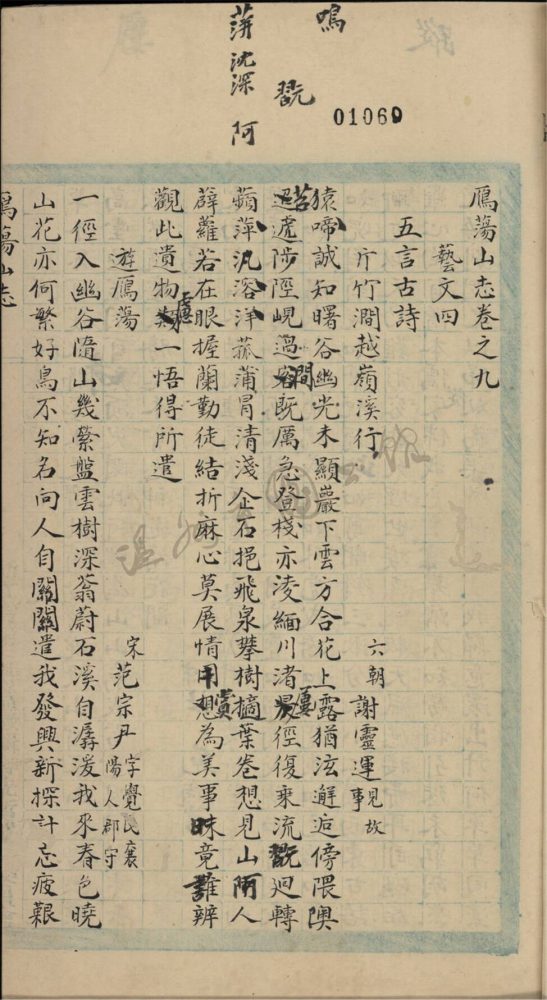 鳴
翫
蓱沈深 阿
01069
鴈蕩山志卷之九
藝文四
五言古詩
斤竹澗越嶺溪行 六朝謝靈運見故事
猿啼誠知曙谷幽光未顯巖下雲方合花上露猶泫邂逅傍隈隩
苕遞陟陘峴過澗既厲急登棧亦淩緬川渚屢徑復乘流翫迴轉
蘋萍汎溶洋菰蒲冒清淺企石挹飛泉攀樹擿葉卷想見山阿人
薜蘿若在眼握蘭勤徒結折麻心莫展情用賞為美事昧竟難辨
觀此遺物慮一悟得所遣
遊鴈蕩 宋范宗尹字覺民襄陽人郡守
一徑入幽谷隨山幾縈盤雲樹深蓊蔚石溪自潺湲我來春色曉
山花亦何繁好鳥不知名向人自關關遣我發興新探討忘疲艱
鴈蕩山志